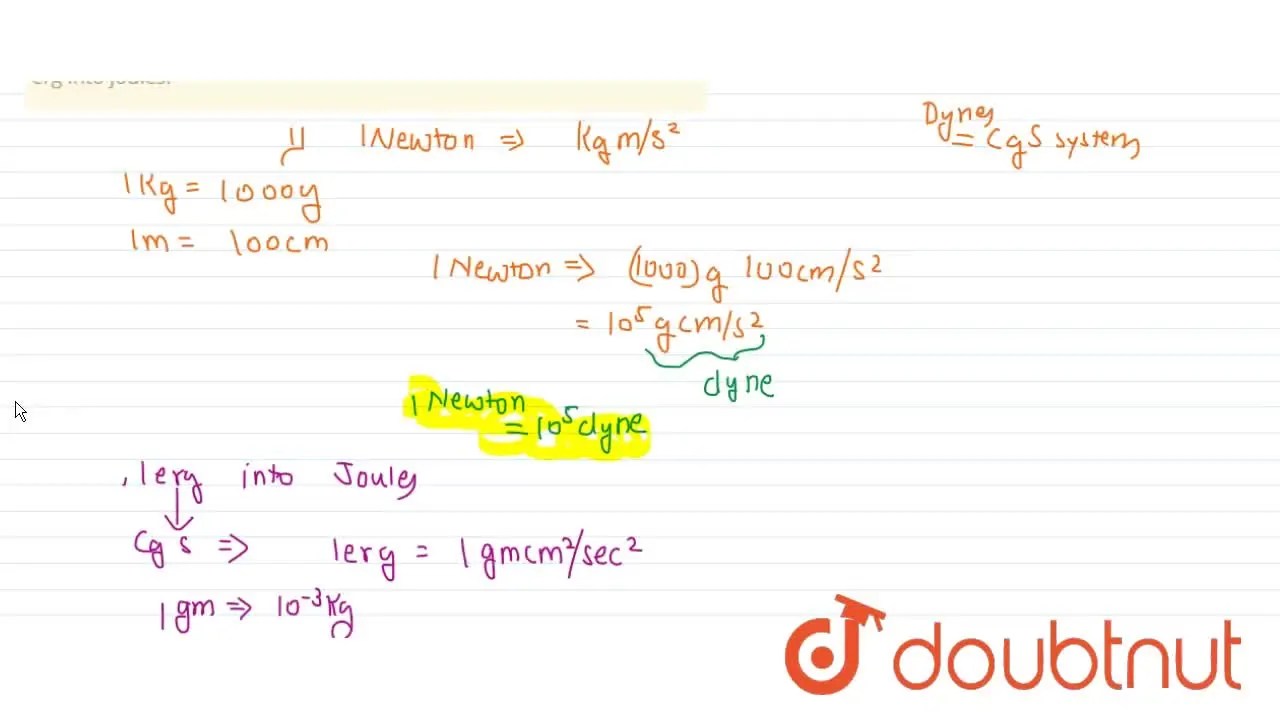 erg into joules.
1 Newton ⇒ Kg m/s²
Dynes
= CgS system
1Kg = 1000g
1m = 100cm
1 Newton ⇒ (1000)g 100cm/s²
= 10⁵ gcm/s²
dyne
1 Newton
= 10⁵ dyne
, 1erg into Joules
CgS ⇒ 1erg = 1 gmcm²/sec²
1gm ⇒ 10⁻³Kg
doubtnut